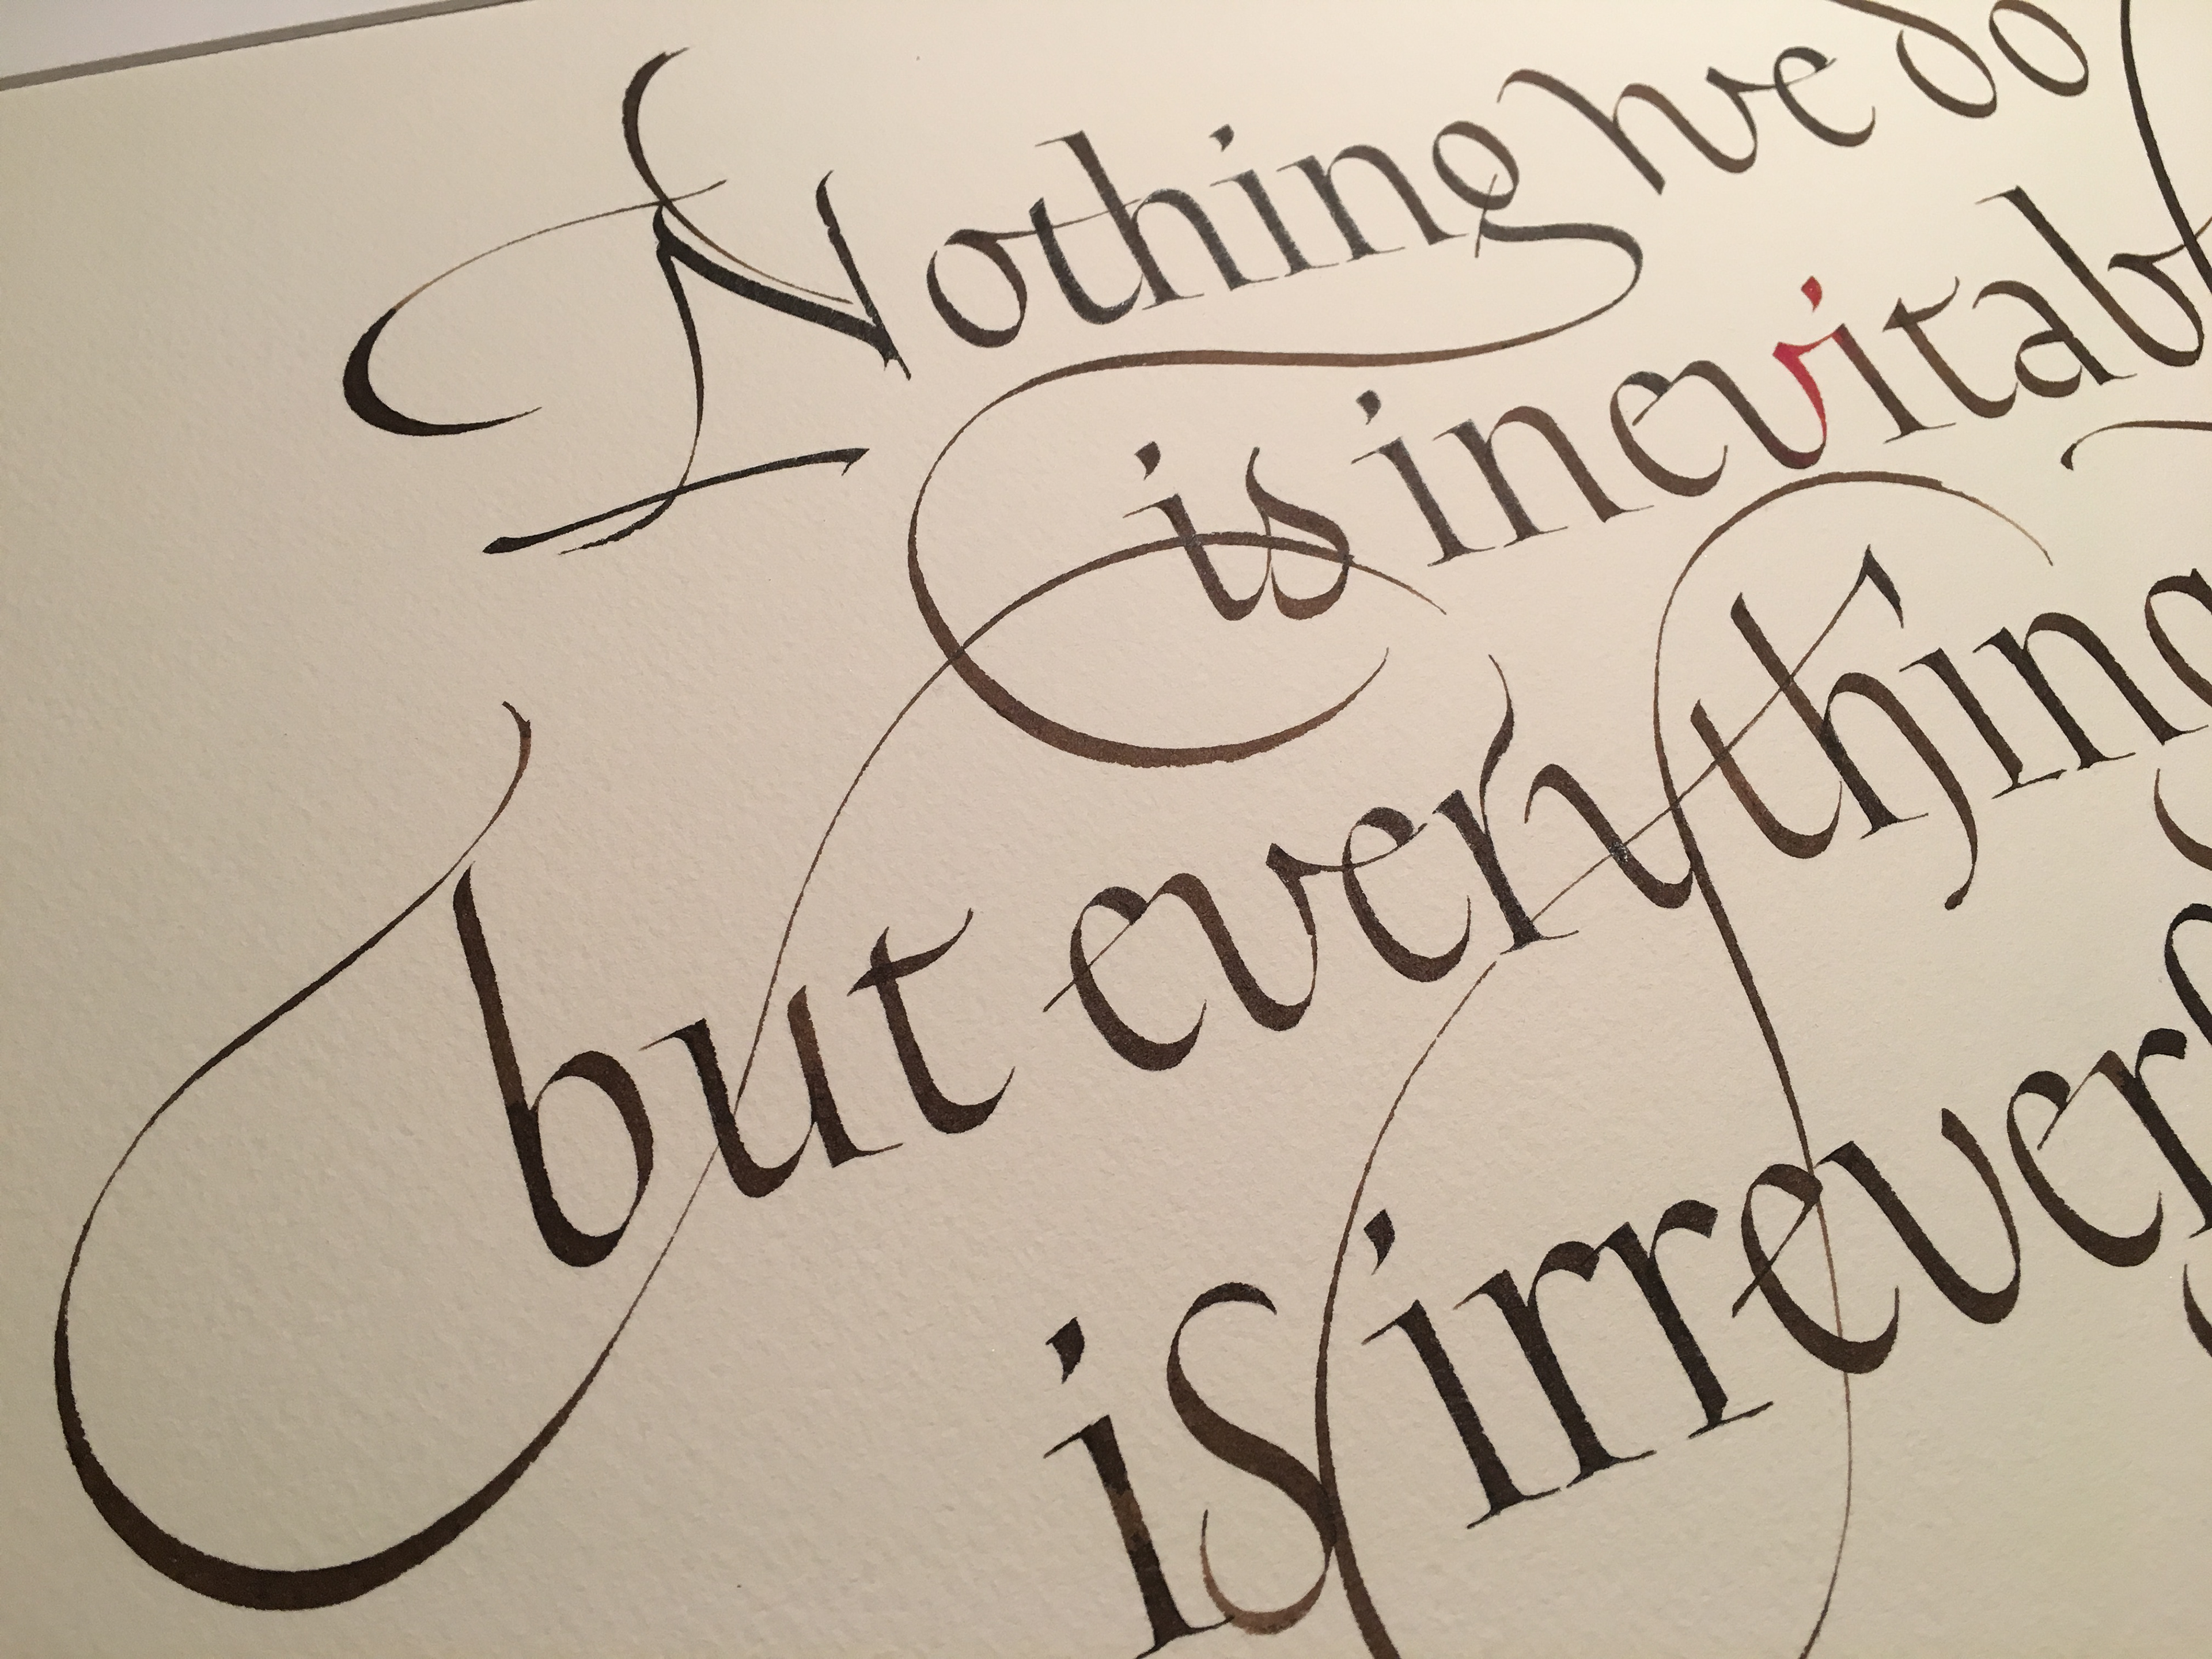 Nothing we do
is inevitab
but everything
is irrever